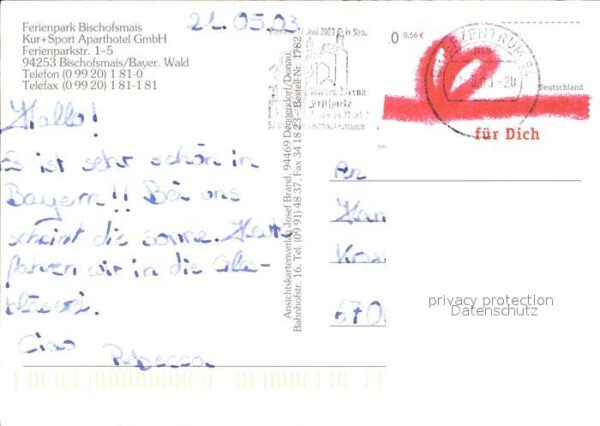 Ferienpark Bischofsmais
Kur+Sport Aparthotel GmbH
Ferienparkstr. 1-5
94253 Bischofsmais/Bayer. Wald
Telefon (0 99 20) 1 81-0
Telefax (0 99 20) 1 81-1 81
21.05.03
Hallo!
Es ist sehr schön in
Bayern!! Bei uns
scheint die Sonne. Heute
fahren wir in die Glas-
bläserei.
Ciao
Rebecca
Ansichtskartenverlag Josef Brand, 94469 Deggendorf/Donau,
Bahnhofstr. 16, Tel. (09 91) 48 37, Fax 34 18 23 - Bestell Nr. 1782
0,56 €
BRIEFZENTRUM
Deutschland
für Dich
An
670
privacy protection
Datenschutz